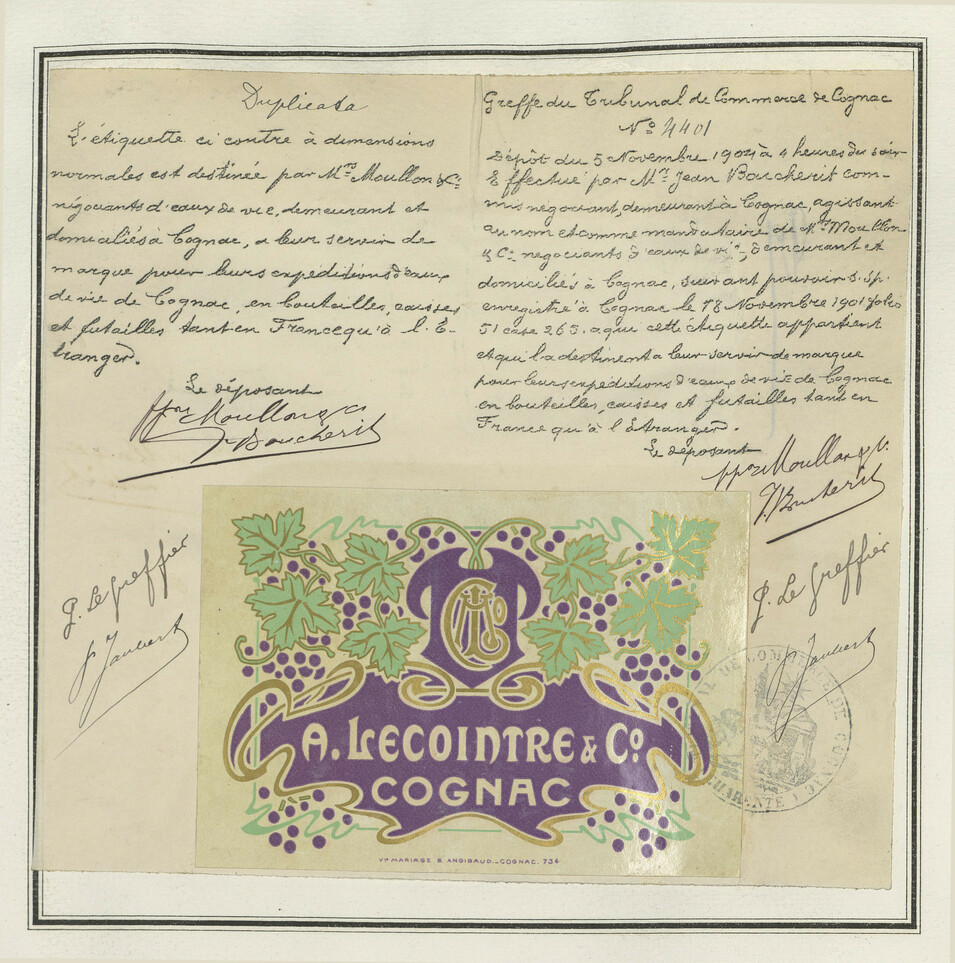 Duplicata
L'étiquette ci contre à dimensions
normales est destinée par Mrs Moullon & Cie
négociants d'eaux de vie, demeurant et
domiciliés à Cognac, a leur servir de
marque pour leurs expéditions d'eaux
de vie de Cognac, en bouteilles, caisses
et futailles tant en France qu'à l'E-
tranger.
Le déposant
ppon Moullon & Co
J Boucherit
P. Le Greffier
Jaubert
Greffe du Tribunal de Commerce de Cognac
No 4401
Dépôt du 5 Novembre 1904 à 4 heures du soir
Effectué par Mr Jean Boucherit com-
mis negociant, demeurant à Cognac, agissant
au nom et comme mandataire de Mrs Moullon
& Co negociants d'eaux de vie, demeurant et
domiciliés à Cognac, suivant pouvoir s. sp.
enregistré à Cognac le 18 Novembre 1901 folio
51 case 265. a qui cette étiquette appartient
et qui la destinent a leur servir de marque
pour leurs expéditions d'eaux de vie de Cognac
en bouteilles, caisses et futailles tant en
France qu'à l'Etranger.
Le déposant
ppon Moullon & Co
J. Boucherit
P. Le Greffier
Jaubert
A. LECOINTRE & Co.
COGNAC
Ve MARIAGE & ANGIBAUD._COGNAC. 734
DE COMMERCE DE COGNAC
CHARENTE